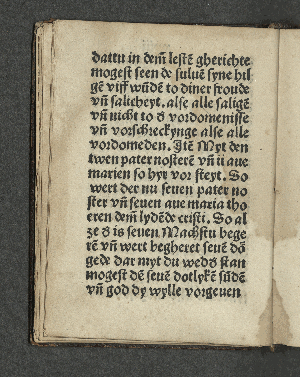 dattu in dem̄ lestē gherichte
mogest seen de suluē syne hil
gē viff wūdē to diner froude
vn̄ salicheyt. alse alle saligē
vn̄ nicht to d vordomenisse
vn̄ vorschreckynge alse alle
vordomeden. Itē Myt den
twen pater nosterē vn̄ ii aue
marien so hyr vor steyt. So
wert der nu seuen pater no
ster vn̄ seuen aue maria tho
eren dem̄ lydēde cristi. So al
ze d is seuen Machstu bege
rē vn̄ wert begheret seuē dō
gede dar myt du wedd stan
mogest dē seuē dotlykē sūdē
vn̄ god dy wylle vorgeuen